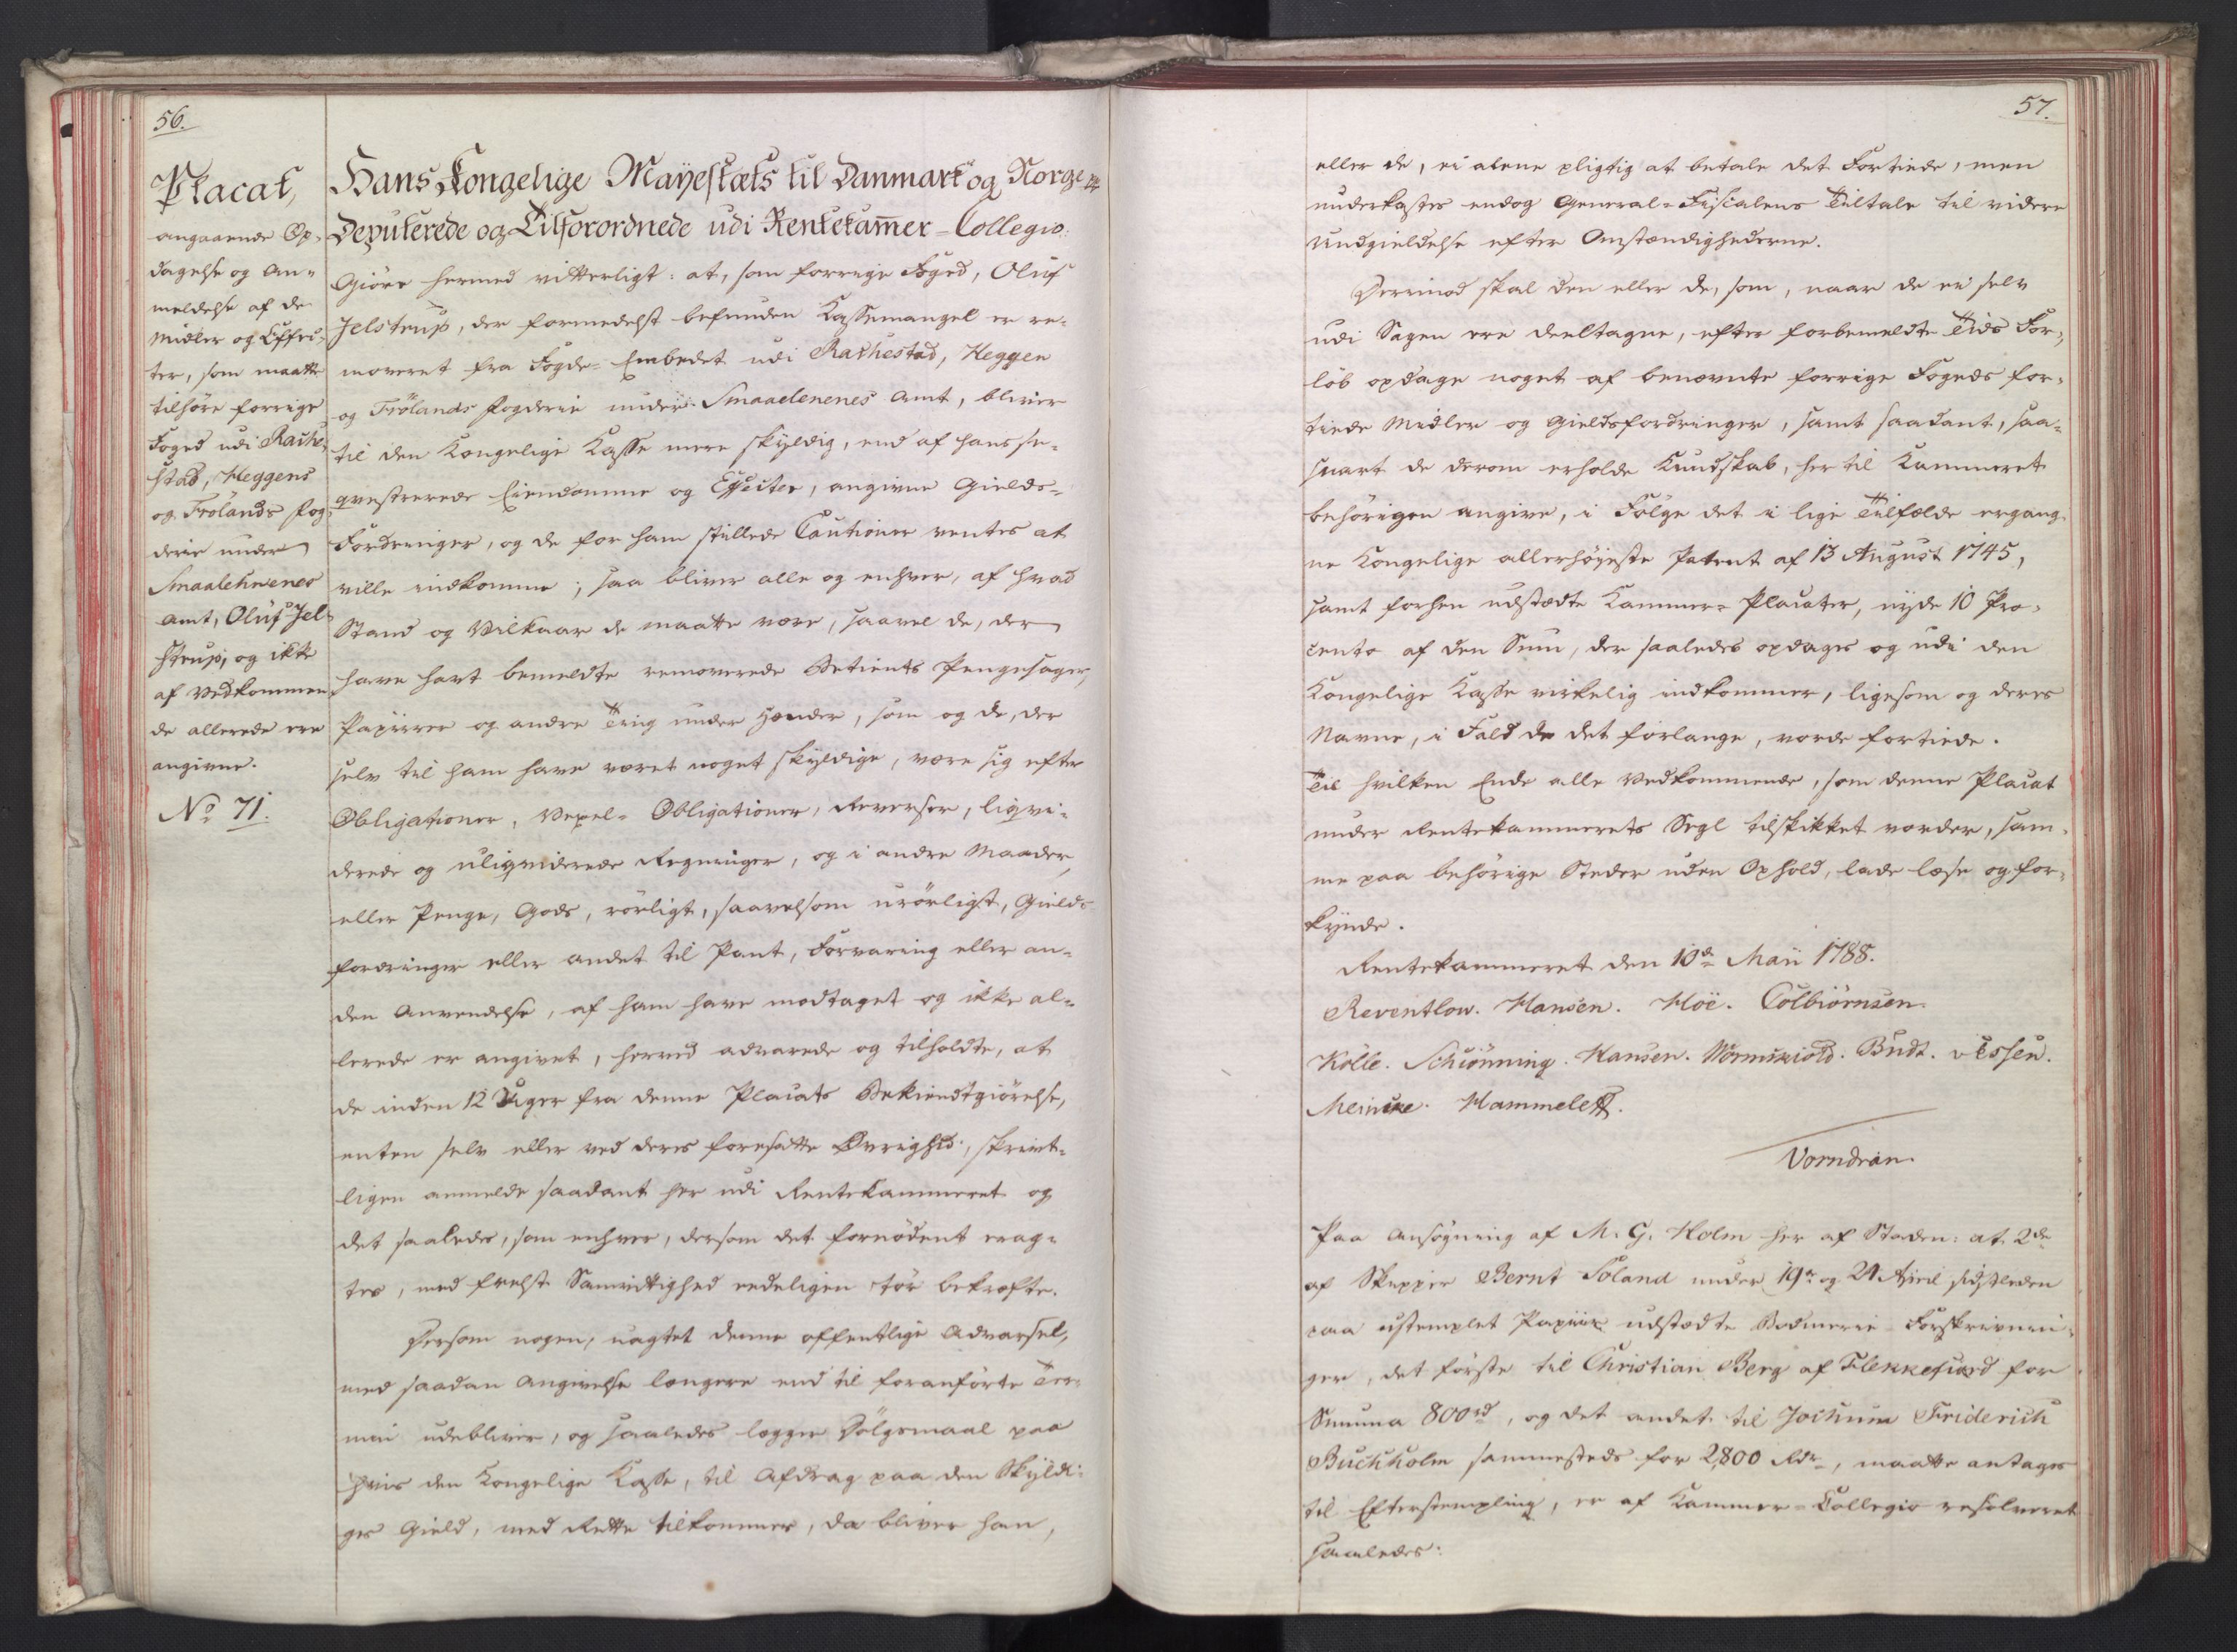 56.
Placat,
angaaende Op-
dagelse og An-
meldelse af de
Midler og Effec-
ter, som maatte
tilhöre forrige
Foged udi Rache-
stad, Heggens
og Frölands Fog-
derie under
Smaalehnenes
Amt, Oluf Jel-
strup, og ikke
af Vedkommen-
de allerede ere
angivne.
No 71.
Hans Kongelige Mayestæts til Danmark og Norge &c
Deputerede og Tilforordnede udi Rentekam̄er-Collegio:
Giöre hermed vitterligt: at, som forrige Foged, Oluf
Jelstrup, der formedelst befunden Kassemangel er re-
moveret fra Fogde-Embedet udi Rachestad, Heggen
og Frölands Fogderie under Smaalenenes Amt, bliver
til den Kongelige Kasse mere skyldig, end af hans se-
qvestrerede Eiendomme og Effecter, angivne Gields-
Fordringer, og de for ham stillede Cautioner ventes at
ville indkomme; saa bliver alle og enhver, af hvad
Stand og Vilkaar de maatte være, saavel de, der
have havt bemeldte removerede Betients Pengesager,
Papiirer og andre Ting under Hænder, som og de, der
selv til ham have været noget skyldige, være sig efter
Obligationer, Vexel-Obligationer, Reverser, liqvi-
derede og uliqviderede Regninger, og i andre Maader,
eller Penge, Gods, rörligt, saavelsom urörligt, Gields-
fordringer eller andet til Pant, Forvaring eller an-
den Anvendelse, af ham have modtaget og ikke al-
lerede er angivet, herved advarede og tilholdte, at
de inden 12 Uger fra denne Placats Bekiendtgiörelse,
enten selv eller ved deres foresatte Øvrighed, skrivt-
ligen anmelde saadant her udi Rentekammeret og
det saaledes, som enhver, dersom det fornödent erag-
tes, med frelst Samvittighed eedeligen tör bekræfte.
Dersom nogen, uagtet denne offentlige Advarsel,
med saadan Angivelse længere end til foranförte Ter-
min udebliver, og saaledes lægger Dölgsmaal paa
hvis den Kongelige Kasse, til Afdrag paa den Skyldi-
ges Gield, med Rette tilkommer, da bliver han,
57.
eller de, ei alene pligtig at betale det Fortiede, men
underkastes endog General-Fiscalens Tiltale til videre
Undgieldelse efter Omstændighederne.
Derimod skal den eller de, som, naar de ei selv
udi Sagen ere deeltagne, efter forbemeldte Tids For-
löb opdage noget af benævnte forrige Fogeds for-
tiede Midler og Gieldsfordringer, samt saadant, saa-
snart de derom erholde Kundskab, her til Kammeret
behörigen angive, i Fölge det i lige Tilfælde ergang-
ne Kongelige allerhöjeste Patent af 13 August 1745,
samt forhen udstædte Kammer-Placater, nyde 10 Pro-
cento af den Sum, der saaledes opdages og udi den
Kongelige Kasse virkelig indkommer, ligesom og deres
Navne, i Fald de det forlange, vorde fortiede.
Til hvilken Ende alle Vedkommende, som denne Placat
under Rentekammerets Segl tilskikket vorder, sam-
me paa behörige Steder uden Ophold, lade læse og for-
kynde.
Rentekammeret den 10de Maii 1788.
Reventlow. Hansen. Höe. Colbiörnsen.
Kölle. Schiönning. Hansen. Wormskiold. Budt. v Essen.
Meincke. Hammeleff.
Vorndran.
Paa Ansögning af M. G. Holm her af Staden: at 2de
af Skipper Bernt Soland under 19de og 21 April sidstleden
paa ustemplet Papiir udstædte Bodmerie-Forskrivnin-
ger, det förste til Christian Berg af Flekkefiord for
Summa 800 rd, og det andet til Jochum Friderich
Buchholm sammesteds for 2,800 Rdr, maatte antages
til Efterstempling, er af Kammer-Collegio resolveret
saaledes: